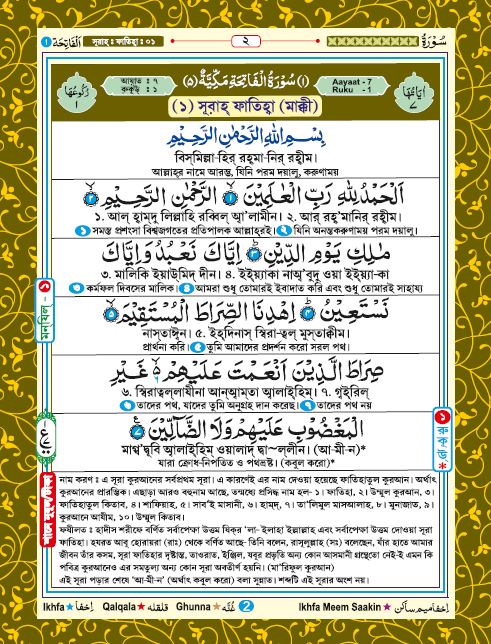 ১ اَلْفَاتِحَة সূরাহ : ফাতিহা : ০১ ২ سُوْرَةُ
رُكُوْعُهَا ١ আয়াত : ৭ রুকূ : ১ (۱) سُوْرَةُ الْفَاتِحَةِ مَكِّيَّةٌ (٥) Aayaat - 7 Ruku - 1 اٰيَاتُهَا ٧
(১) সূরাহ্ ফাতিহা (মাক্কী)
بِسْمِ اللهِ الرَّحْمٰنِ الرَّحِيْمِ
বিস্‌মিল্লা-হির্ রহ্‌মা-নির্ রহীম।
আল্লাহ্‌র নামে আরম্ভ, যিনি পরম দয়ালু, করুণাময়
اَلْحَمْدُ لِلّٰهِ رَبِّ الْعٰلَمِيْنَ ١ الرَّحْمٰنِ الرَّحِيْمِ ٢
১. আল্ হাম্‌দু লিল্লাহি রব্বিল্ আ'লামীন। ২. আর্ রহ্'মানির্ রহীম।
১ সমস্ত প্রশংসা বিশ্বজগতের প্রতিপালক আল্লাহ্‌রই। ২ যিনি অনন্তকরুণাময় পরম দয়ালু।
مٰلِكِ يَوْمِ الدِّيْنِ ٣ اِيَّاكَ نَعْبُدُ وَاِيَّاكَ
৩. মালিকি ইয়াউমিদ্ দীন। ৪. ইইয়্যাকা নাঅ্'বুদু ওয়া ইইয়্যা-কা
৩ কর্মফল দিবসের মালিক। ৪ আমরা শুধু তোমারই ইবাদাত করি এবং শুধু তোমারই সাহায্য
نَسْتَعِيْنُ ٤ اِهْدِنَا الصِّرَاطَ الْمُسْتَقِيْمَ ٥
নাস্‌তাঈন। ৫. ইহ্‌দিনাস্ স্বিরা-ত্বল্ মুস্‌তাক্বীম।
প্রার্থনা করি। ৫ তুমি আমাদের প্রদর্শন করো সরল পথ।
صِرَاطَ الَّذِيْنَ اَنْعَمْتَ عَلَيْهِمْ ٦ غَيْرِ
৬. স্বিরাত্বল্‌লাযীনা আন্‌আ়ম্‌তা আ়লাইহিম্। ৭. গ়ইরিল্
৬ তাদের পথ, যাদের তুমি অনুগ্রহ দান করেছ। ৭ তাদের পথ নয়
الْمَغْضُوْبِ عَلَيْهِمْ وَلَا الضَّآلِّيْنَ ٧
মাগ়্দ্বূবি আ়লাইহিম্ ওয়ালাদ্ দ্বা~ল্‌লীন। (আ-মী-ন)*
যারা ক্রোধ-নিপতিত ও পথভ্রষ্ট। (কবুল করো)*
নাম করণ : এ সূরা কুরআনের সর্বপ্রথম সূরা। এ কারণেই এর নাম দেওয়া হয়েছে ফাতিহাতুল কুরআন। অর্থাৎ
কুরআনের প্রারম্ভিক। এছাড়া আরও বহুনাম আছে, তন্মধ্যে প্রসিদ্ধ নাম হল- ১। ফাতিহা, ২। উম্মুল কুরআন, ৩।
ফাতিহাতুল কিতাব, ৪। শাফিয়াহ, ৫। সাব'ই মাসানী, ৬। হামদ, ৭। তা'লিমুল মাসআলাহ, ৮। মুনাজাত, ৯।
কুরআনে আযীম, ১০। উম্মুল কিতাব।
ফযীলত : হাদীস শরীফে বর্ণিত সর্বাপেক্ষা উত্তম যিক্‌র 'লা-ইলাহা ইল্লাল্লাহ এবং সর্বাপেক্ষা উত্তম দেওয়া সূরা
ফাতিহা। হযরত আবু হোরায়রা (রাঃ) থেকে বর্ণিত আছে- তিনি বলেন, রাসূলুল্লাহ (সঃ) বলেছেন, যাঁর হাতে আমার
জীবন তাঁর কসম, সূরা ফাতিহার দৃষ্টান্ত, তাওরাত, ইঞ্জিল, যবুর প্রভৃতি অন্য কোন আসমানী গ্রন্থেতো নেই-ই এমন কি
পবিত্র কুরআনেও এর সমতুল্য অন্য কোন সূরা অবতীর্ণ হয়নি। (মা'রিফুল কুরআন)
এই সূরা পড়ার শেষে 'আ-মী-ন' (অর্থাৎ কবুল করো) বলা সুন্নাত। শব্দটি এই সূরার অংশ নয়।
মনযিল - ১
শানে নুযূল/টীকা
১ রুকূ *
Ikhfa ★ اِخْفَا Qalqala ★ قلقله Ghunna ★ غُنَّه 2 Ikhfa Meem Saakin ★ اِخْفَا مِيم ساكن